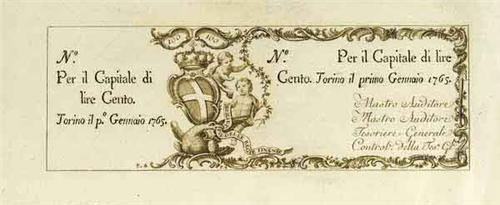 100 100
N.º
Per il Capitale di
lire Cento.
Torino il p.º Gennaio 1765.
N.º
Per il Capitale di lire
Cento. Torino il primo Gennaio 1765.
Mastro Auditore
Mastro Auditore
Tesoriere Generale